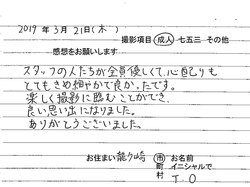 2019年3月21日(木)
撮影項目 成人 七五三 その他
感想をお願いします
スタッフの人たちが全員優しくて、心配りも
とてもきめ細やかで良かったです。
楽しく撮影に臨むことができ、
良い思い出になりました。
ありがとうございました。
お住まい 龍ヶ崎 市 町 村 お名前 イニシャルで T.O